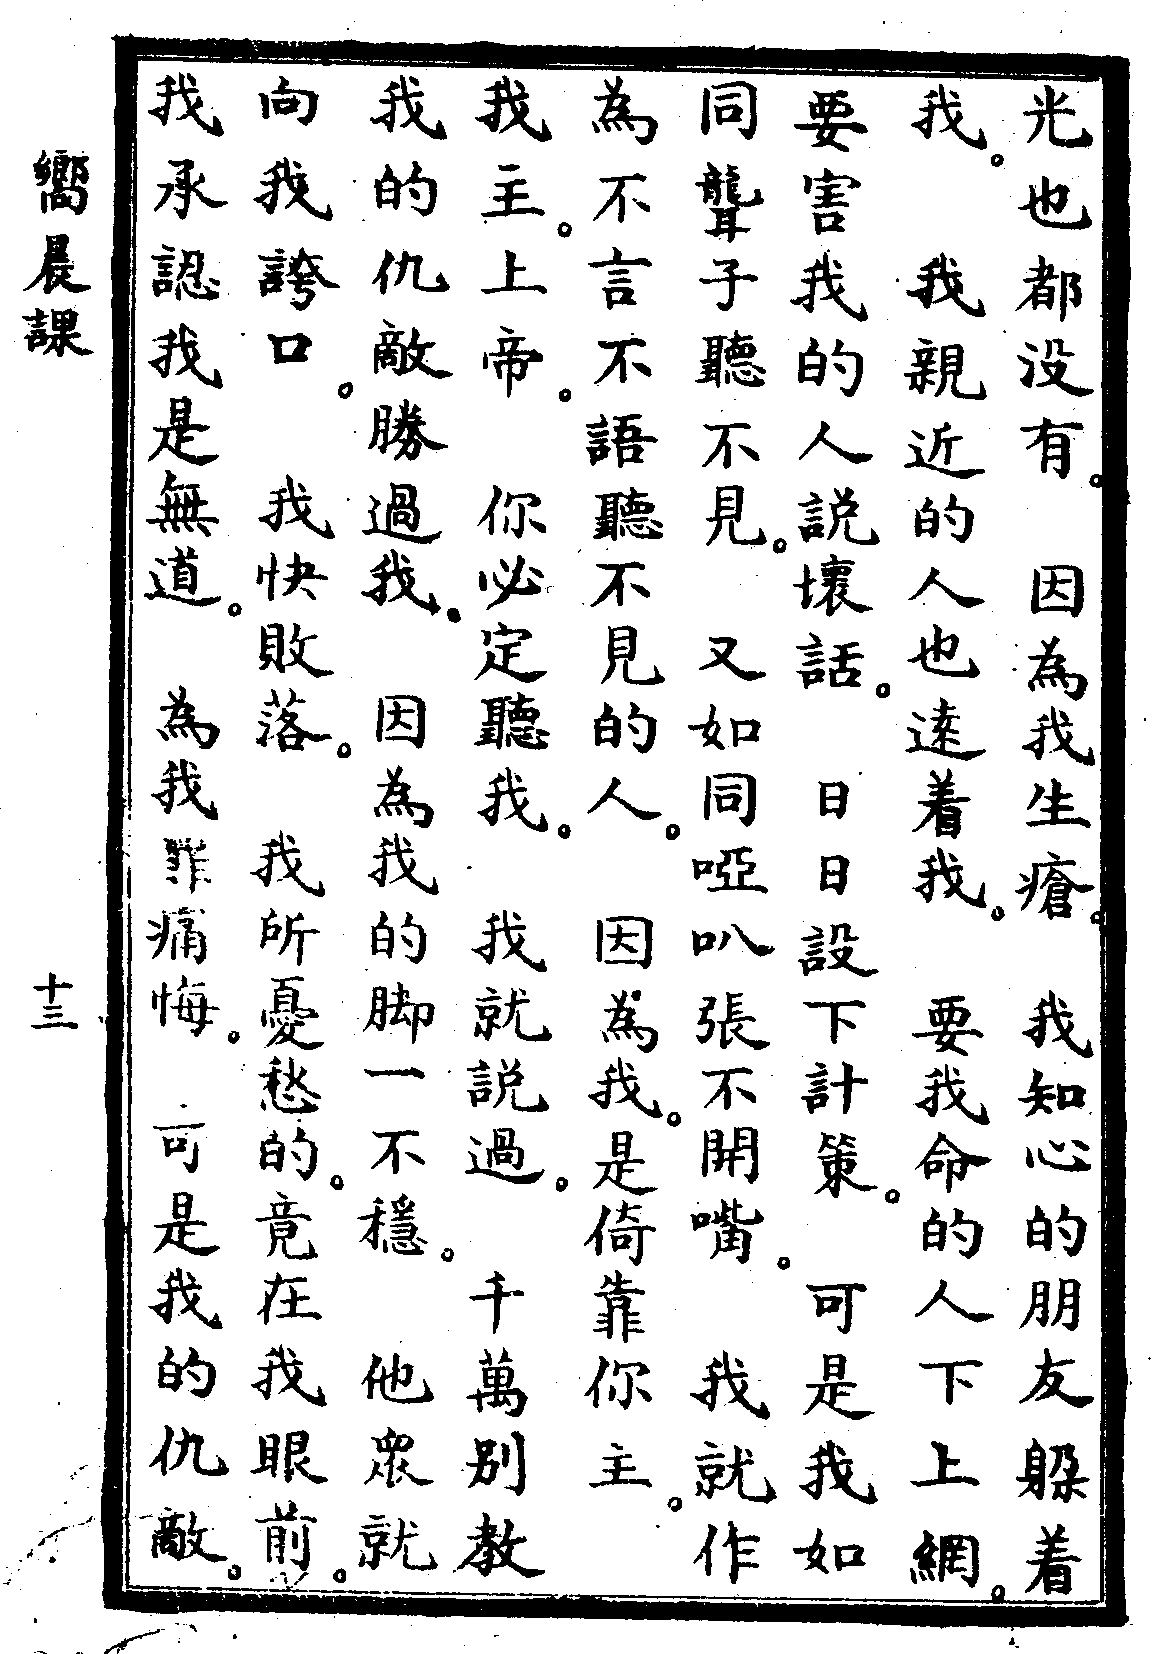 光也都没有。因為我生瘡。我知心的朋友躱着
我。我親近的人也逺着我。要我命的人下上網。
要害我的人説壞話。日日設下計策。可是我如
同聾子聽不見。又如同啞叭張不開嘴。我就作
為不言不語聽不見的人。因為我。是倚靠你主。
我主。上帝。你必定聽我。我就説過。千萬别教
我的仇敵勝過我。因為我的脚一不穩。他衆就
向我誇口。我快敗落。我所憂愁的。竟在我眼前。
我承認我是無道。為我罪痛悔。可是我的仇敵。
嚮晨課
十三